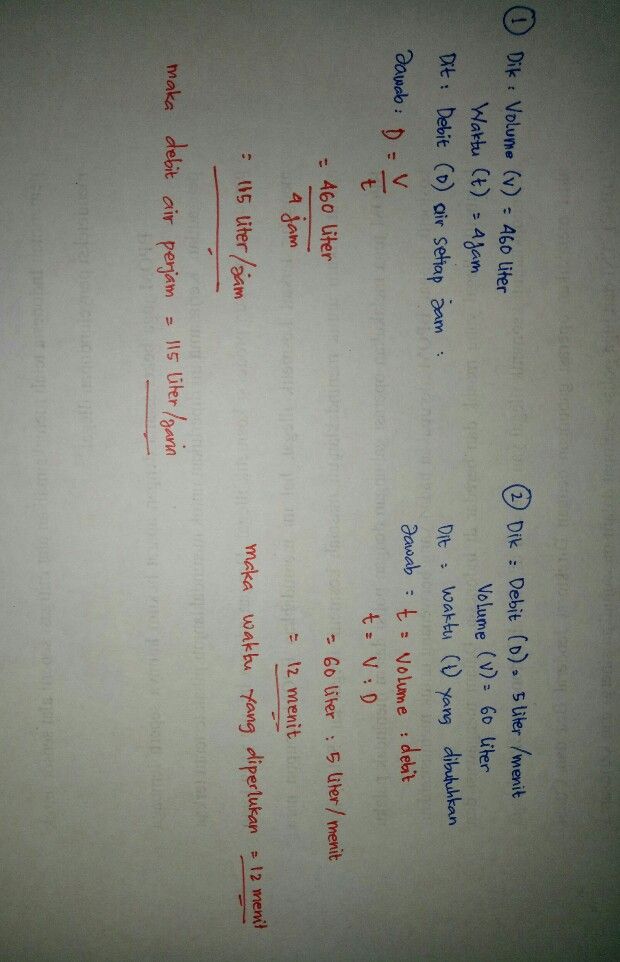 ① Dik : Volume (V) = 460 liter
Waktu (t) = 4 jam
Dit : Debit (D) air setiap jam :
Jawab : D = V
t
= 460 liter
4 jam
= 115 liter/jam
maka debit air perjam = 115 liter/jam
② Dik = Debit (D) = 5 liter/menit
Volume (V) = 60 liter
Dit = Waktu (t) yang dibutuhkan
Jawab = t = Volume : debit
t = V : D
= 60 liter : 5 liter/menit
= 12 menit
maka waktu yang diperlukan = 12 menit